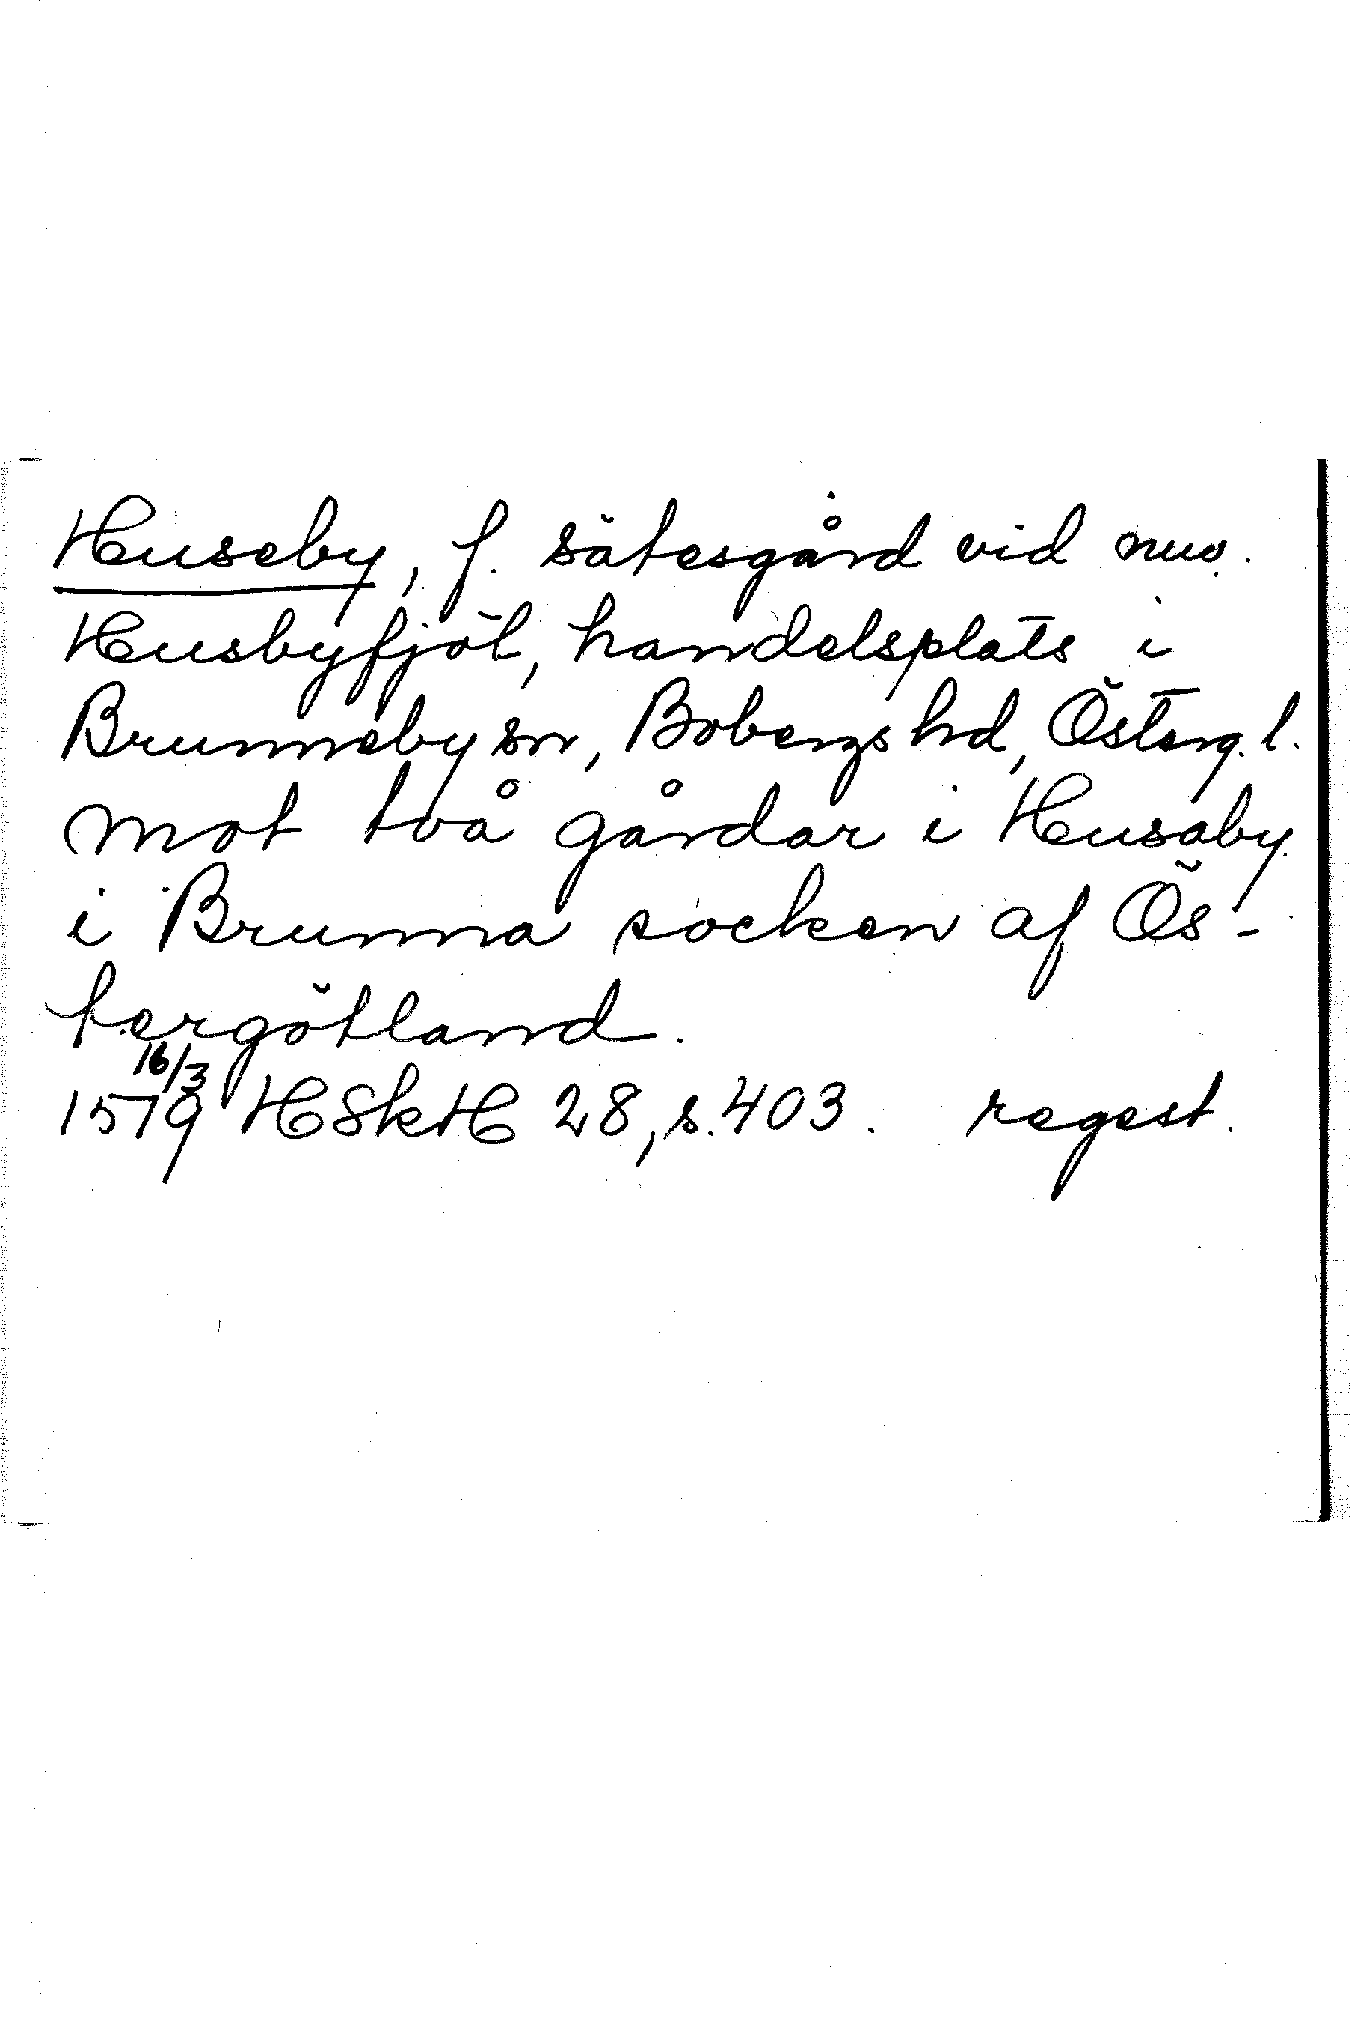 Huseby, f. sätesgård vid nuv.
Husbyfjöl, handelsplats i
Brunneby sn, Bobergs hd, Österg. l.
mot två gårdar i Husaby
i Brunna socken af Ös-
tergötland.
16/3
1579 HSkH 28, s. 403. regest.